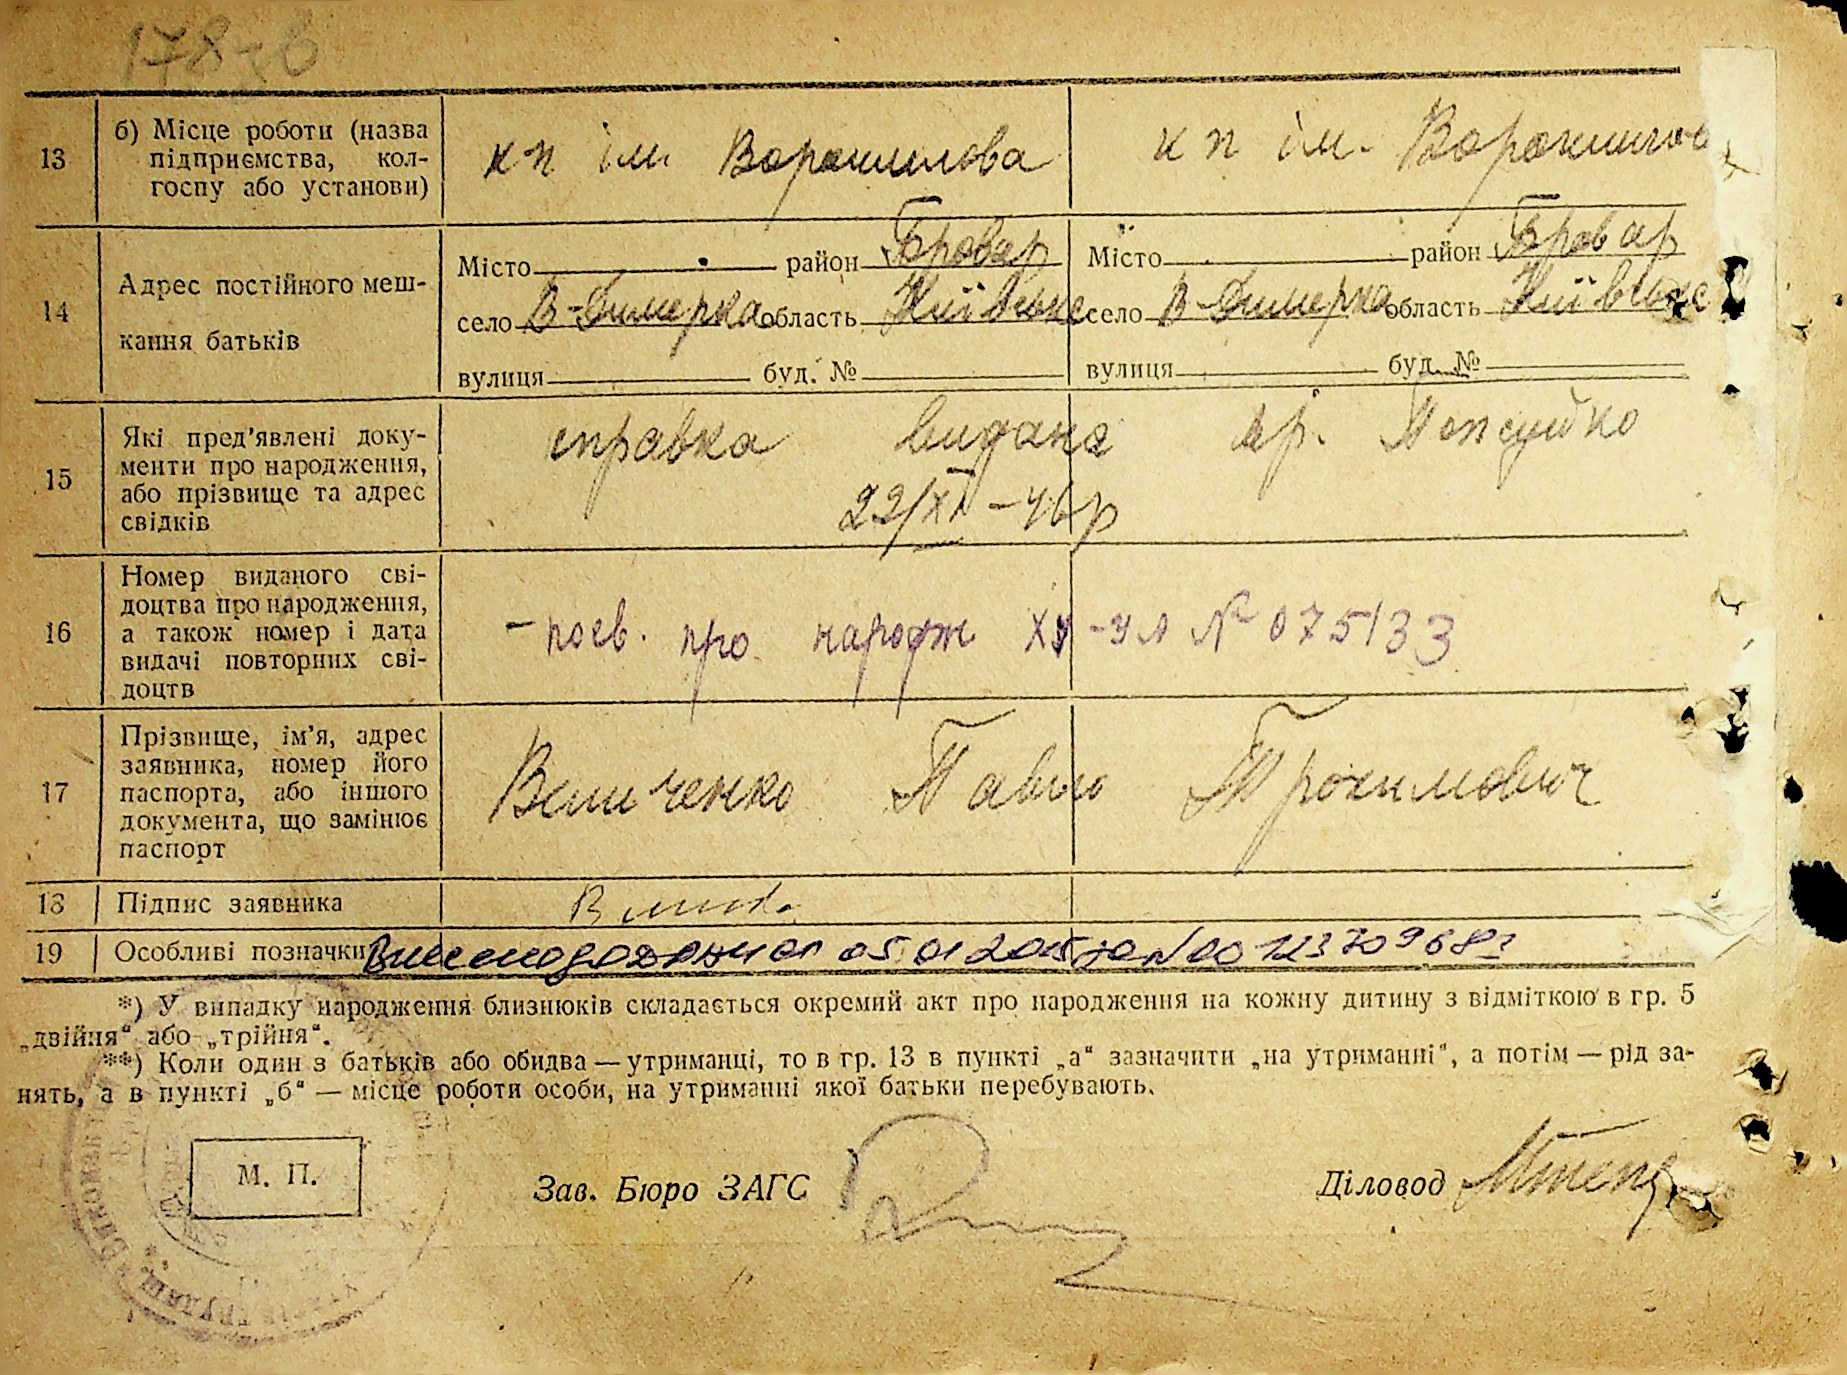 178-зв
13 б) Місце роботи (назва підприємства, колгоспу або установи) кп ім Ворошилова кп ім. Ворошилов
14 Адрес постійного меш-
кання батьків
Місто район Бровар Місто район Бровар
село В-Димерка область Київське село В-Димерка область Київське
вулиця буд. № вулиця буд. №
15 Які пред’явлені доку-
менти про народження,
або прізвище та адрес
свідків
справка видана вр.
22/XI-46р
16 Номер виданого сві-
доцтва про народження,
а також номер і дата
видачі повторних сві-
доцтв
- посв. про народж № 075133
17 Прізвище, ім’я, адрес
заявника, номер його
паспорта, або іншого
документа, що замінює
паспорт
Павло Трохимович
18 Підпис заявника
19 Особливі позначки 05 01 2015
*) У випадку народження близнюків складається окремий акт про народження на кожну дитину з відміткою в гр. 5
„двійня“ або „трійня“.
**) Коли один з батьків або обидва — утриманці, то в гр. 13 в пункті „а“ зазначити „на утриманні“, а потім — рід за-
нять, а в пункті „б“ — місце роботи особи, на утриманні якої батьки перебувають.
М. П.
Зав. Бюро ЗАГС Діловод